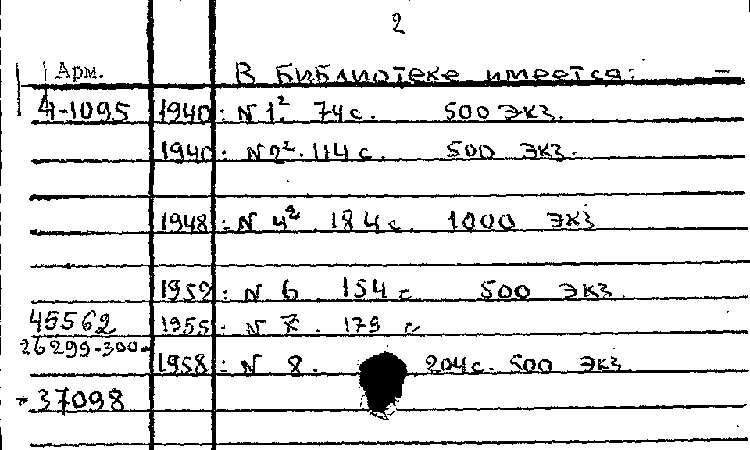 2
Арм. В библиотеке имеется: -
А-1095 1940: N 1² 74 с. 500 экз.
1940: N 2². 114 с. 500 экз.
1948: N 4² 184 с. 1000 экз
1952: N 6 154 с 500 экз.
45562 1955: N 7. 179 с
26299-300-
1958: N 8. 204 с. 500 экз
-37098